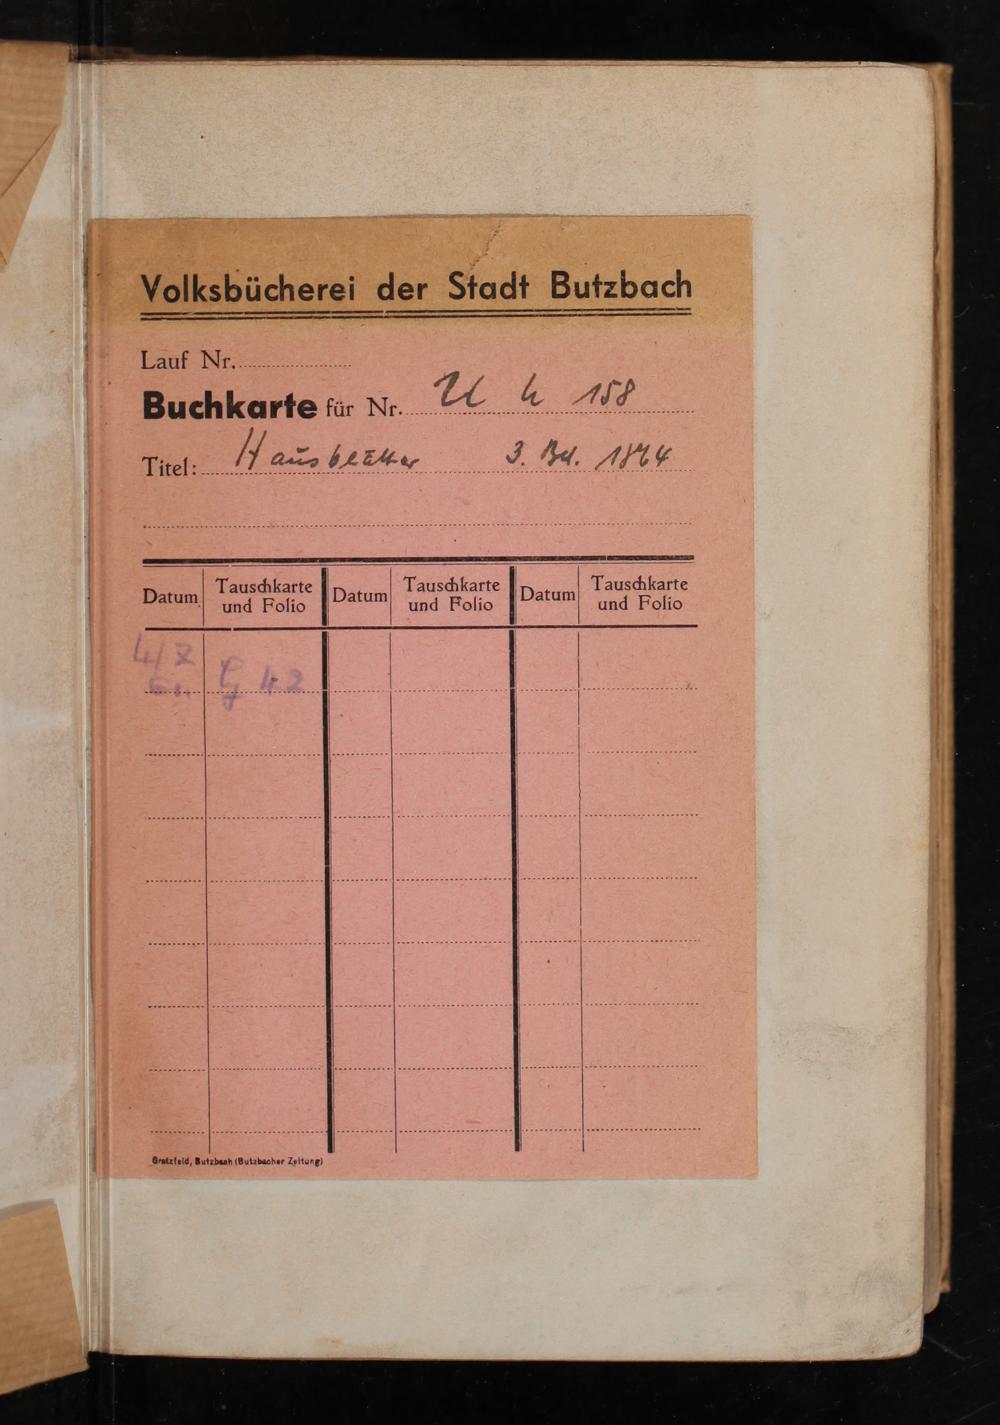 Volksbücherei der Stadt Butzbach
Lauf Nr.
Buchkarte für Nr. U h 158
Titel: Hausblätter 3. Bd. 1864
Datum Tauschkarte und Folio Datum Tauschkarte und Folio Datum Tauschkarte und Folio
G 42
Gratzfeld, Butzbach (Butzbacher Zeitung)